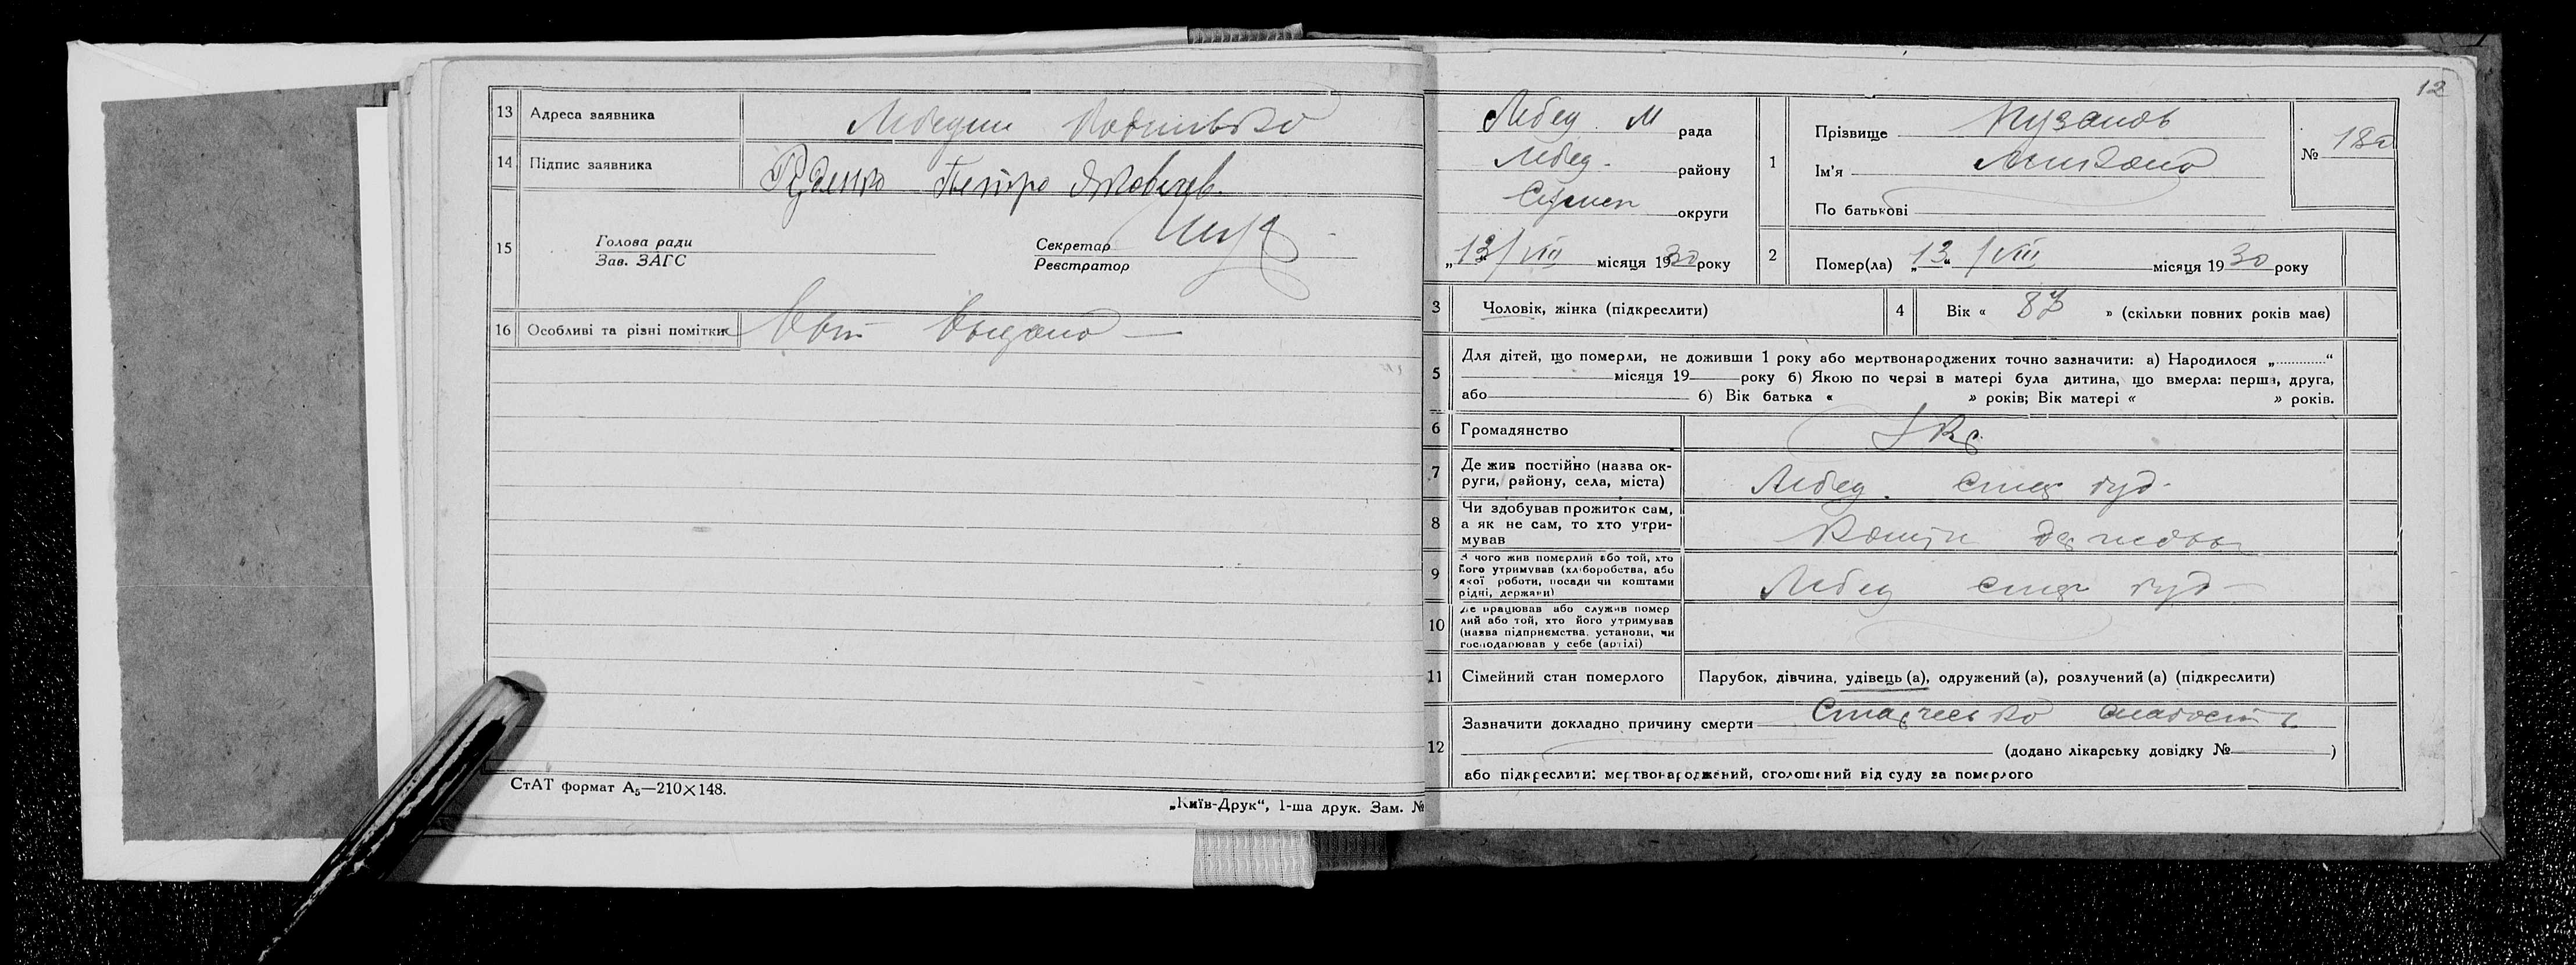 13 Адреса заявника Лебедин
14 Підпис заявника Руденко Петро Яковлев.
15 Голова ради
Зав. ЗАГС
Секретар
Реєстратор
16 Особливі та різні помітки
СтАТ формат А5—210×148.
„Київ-Друк“, 1-ша друк. Зам. №
12
Лебед. М рада
Лебед. району
Сумск округи
„13/VIII місяця 1930 року
1 Прізвище Пузанов
Ім'я
По батькові
№ 180
2 Помер(ла) „13“/VIII місяця 1930 року
3 Чоловік, жінка (підкреслити)
4 Вік « 83 » (скільки повних років має)
5 Для дітей, що померли, не доживши 1 року або мертвонароджених точно зазначити: а) Народилося „............“
місяця 19 року б) Якою по черзі в матері була дитина, що вмерла: перша, друга,
або б) Вік батька « » років; Вік матері « » років.
6 Громадянство Укр.
7 Де жив постійно (назва ок-
руги, району, села, міста) Лебед.
8 Чи здобував прожиток сам,
а як не сам, то хто утри-
мував
9 З чого жив померлий або той, хто
його утримував (хліборобства, або
якої роботи, посади чи коштами
рідні, держави) Лебед
10 Де працював або служив помер
лий або той, хто його утримував
(назва підприємства, установи, чи
господарював у себе (артілі)
11 Сімейний стан померлого Парубок, дівчина, удівець (а), одружений (а), розлучений (а) (підкреслити)
12 Зазначити докладно причину смерти
(додано лікарську довідку № )
або підкреслити: мертвонароджений, оголошений від суду за померлого